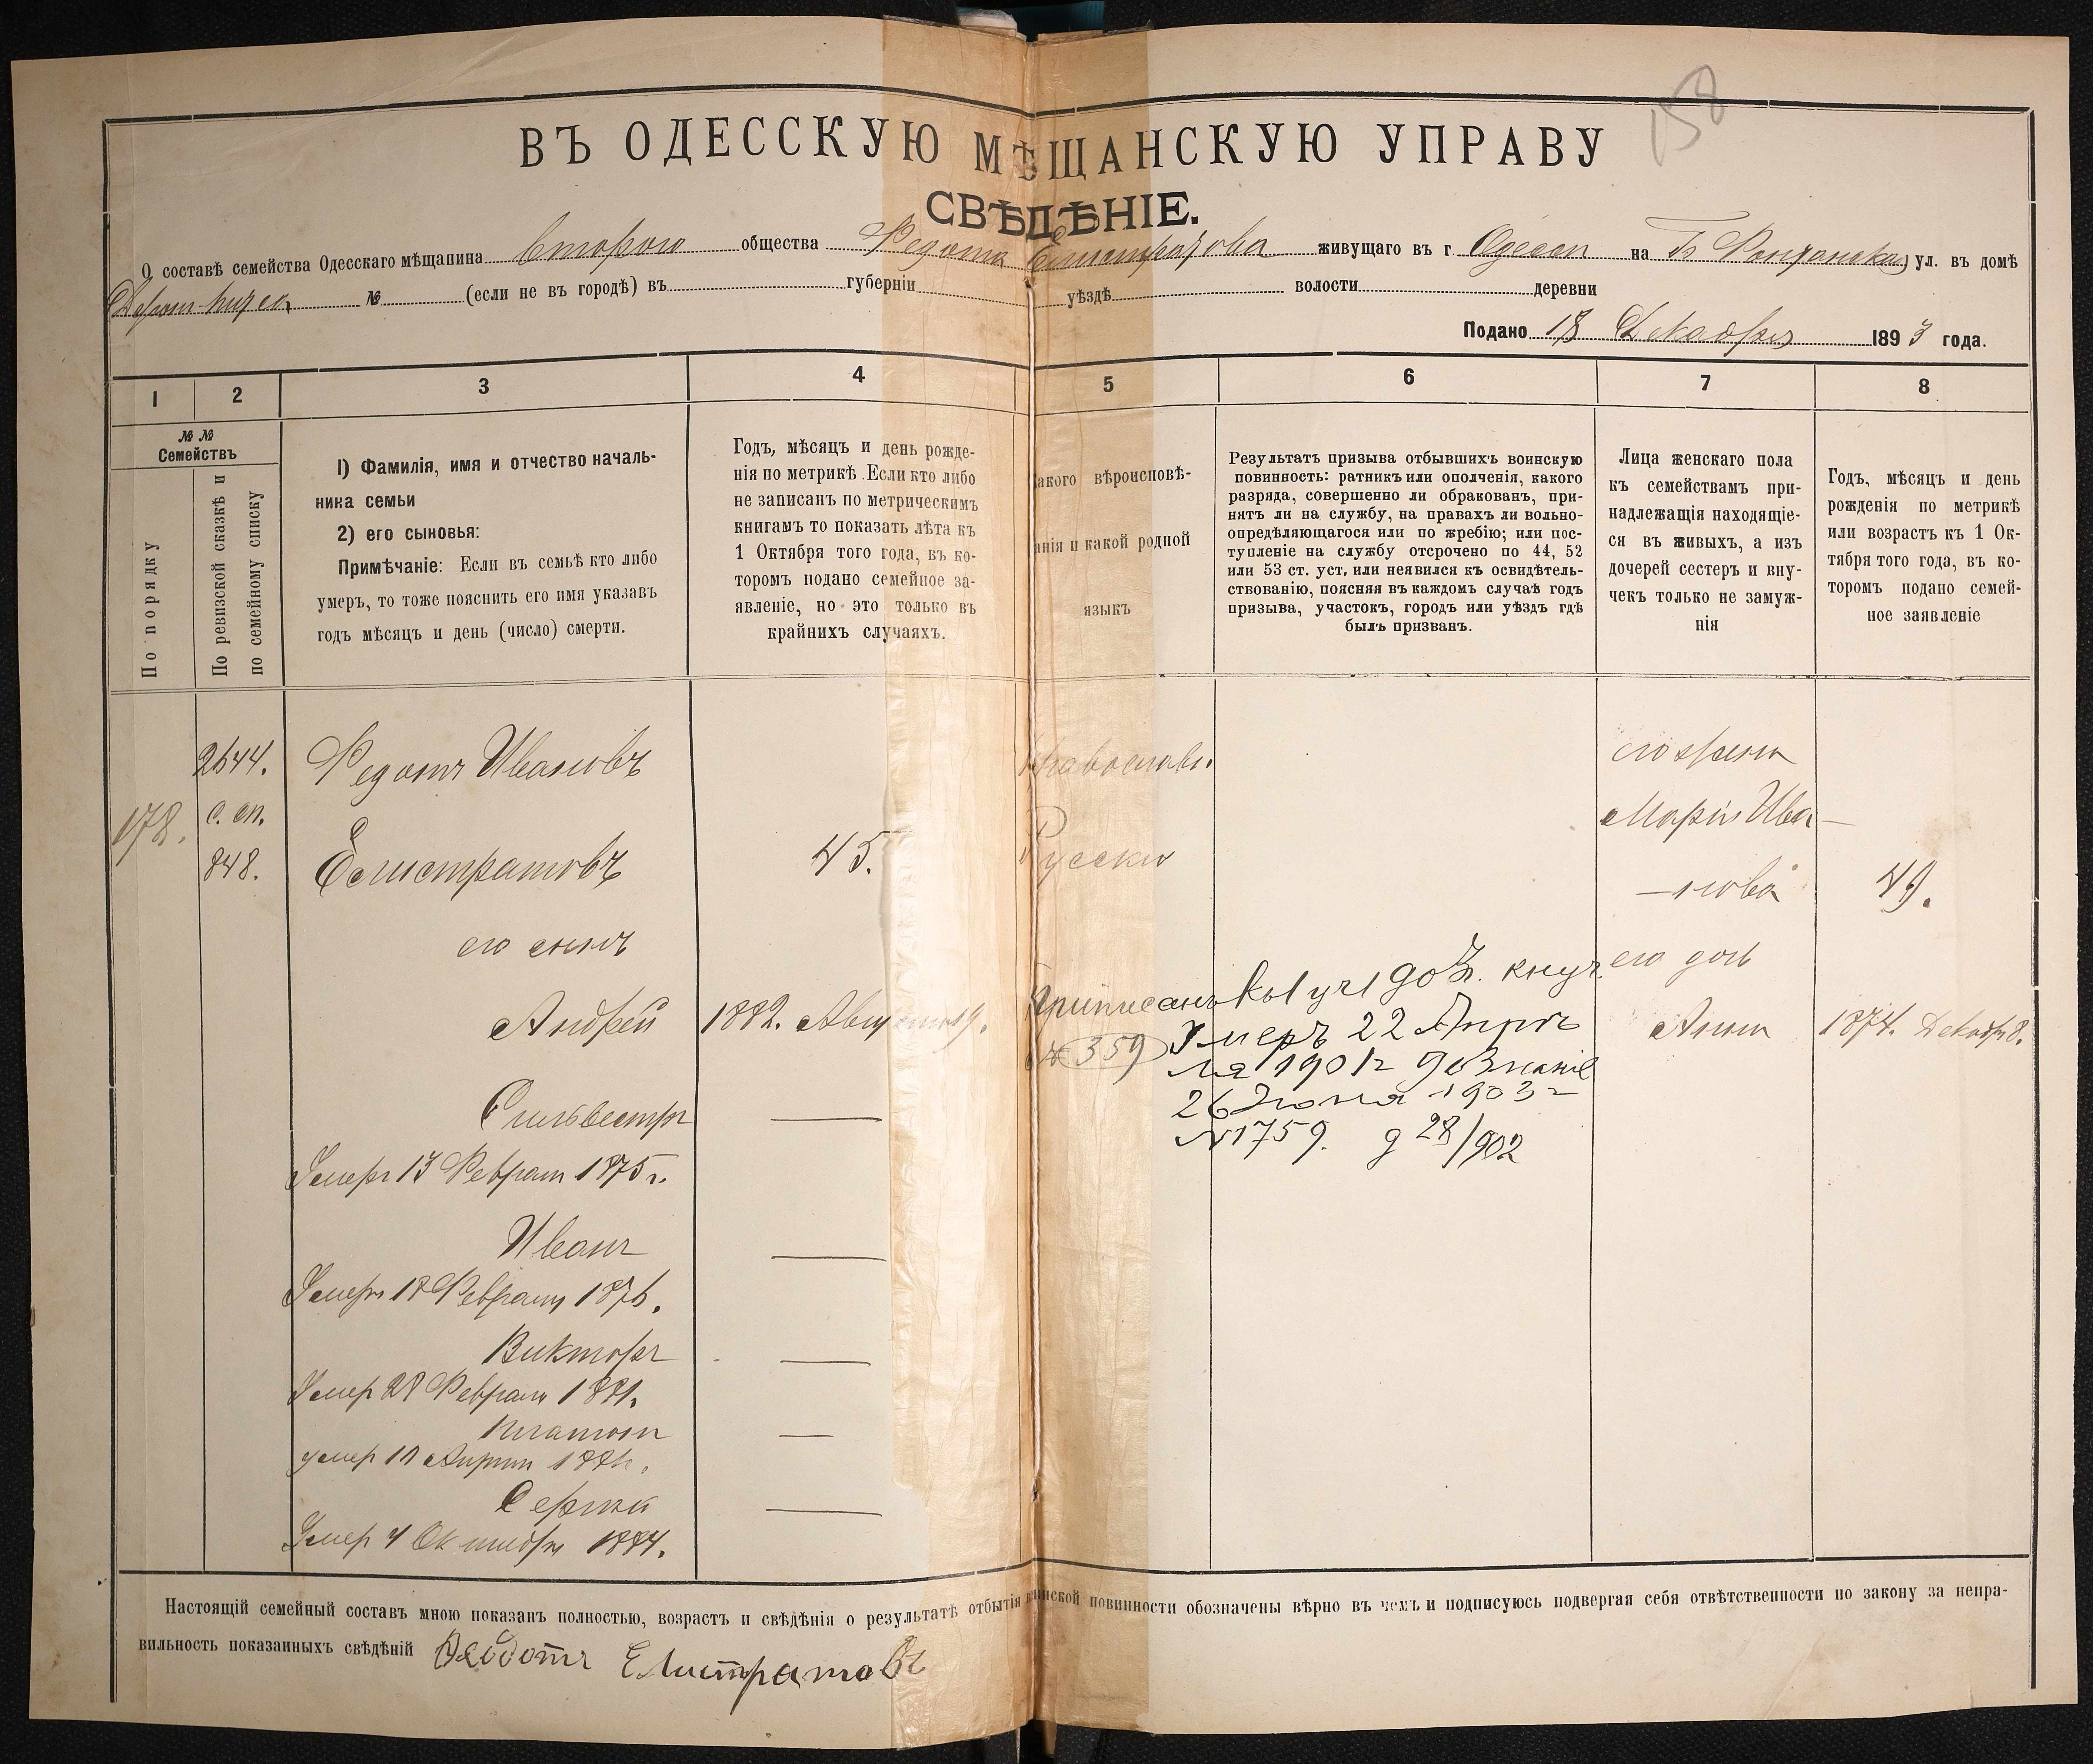 158
ВЪ ОДЕССКУЮ МѢЩАНСКУЮ УПРАВУ
СВѢДѢНІЕ.
О составѣ семейства Одесскаго мѣщанина Второго общества Федота Елистратова живущаго въ г Одессѣ на ул. въ домѣ
№ (если не въ городѣ) въ губерніи уѣздѣ волости деревни
Подано 18 Декабря 1893 года.
1 2 3 4 5 6 7 8
№ №
Семействъ
По порядку
По ревизской сказкѣ и
по семейному списку
1) Фамилія, имя и отчество началь-
ника семьи
2) его сыновья:
Примѣчаніе: Если въ семьѣ кто либо
умеръ, то тоже пояснить его имя указавъ
годъ мѣсяцъ и день (число) смерти.
Годъ, мѣсяцъ и день рожде-
нія по метрикѣ. Если кто либо
не записанъ по метрическимъ
книгамъ то показать лѣта къ
1 Октября того года, въ ко-
торомъ подано семейное за-
явленіе, но это только въ
крайнихъ случаяхъ.
акого вѣроисповѣ-
анія и какой родной
языкъ
Результатъ призыва отбывшихъ воинскую
повинность: ратникъ или ополченія, какого
разряда, совершенно ли обракованъ, при-
нятъ ли на службу, на правахъ ли вольно-
опредѣляющагося или по жребію; или пос-
тупленіе на службу отсрочено по 44, 52
или 53 ст. уст, или неявился къ освидѣтель-
ствованію, поясняя въ каждомъ случаѣ годъ
призыва, участокъ, городъ или уѣздъ гдѣ
былъ призванъ.
Лица женскаго пола
къ семействамъ при-
надлежащія находящіе-
ся въ живыхъ, а изъ
дочерей сестеръ и вну-
чекъ только не замуж-
нія
Годъ, мѣсяцъ и день
рожденія по метрикѣ
или возрастъ къ 1 Ок-
тября того года, въ ко-
торомъ подано семей-
ное заявленіе
178.
2644.
с. сп.
848.
Федотъ Ивановъ
Елистратовъ
45.
Православн.
Русскій
его жена
Марія Ива-
-нова
49.
его сынъ
Андрей
1882. Августа 19.
Приписанъ къ 1 уч 1 90
№ 359
Умеръ 22 Апрѣ
ля 1901 г дознаніе
26 Іюня 1903 г
№ 1759. д 28/902
его дочь
Анна
1874. Декабр 8.
Сильвестръ —
Умеръ 13 Февраля 1875 г.
Иванъ —
Умеръ 18 Февраля 1876.
Викторъ —
Умер 28 Февраля 1881.
Платонъ —
умер 10 Апрѣля
Сергѣй —
Умер 4 Октября 1884.
Настоящій семейный составъ мною показанъ полностью, возрастъ и свѣдѣнія о результатѣ отбытія воинской повинности обозначены вѣрно въ чемъ и подписуюсь подвергая себя отвѣтственности по закону за непра-
вильность показанныхъ свѣдѣній Федотъ Елистратовъ